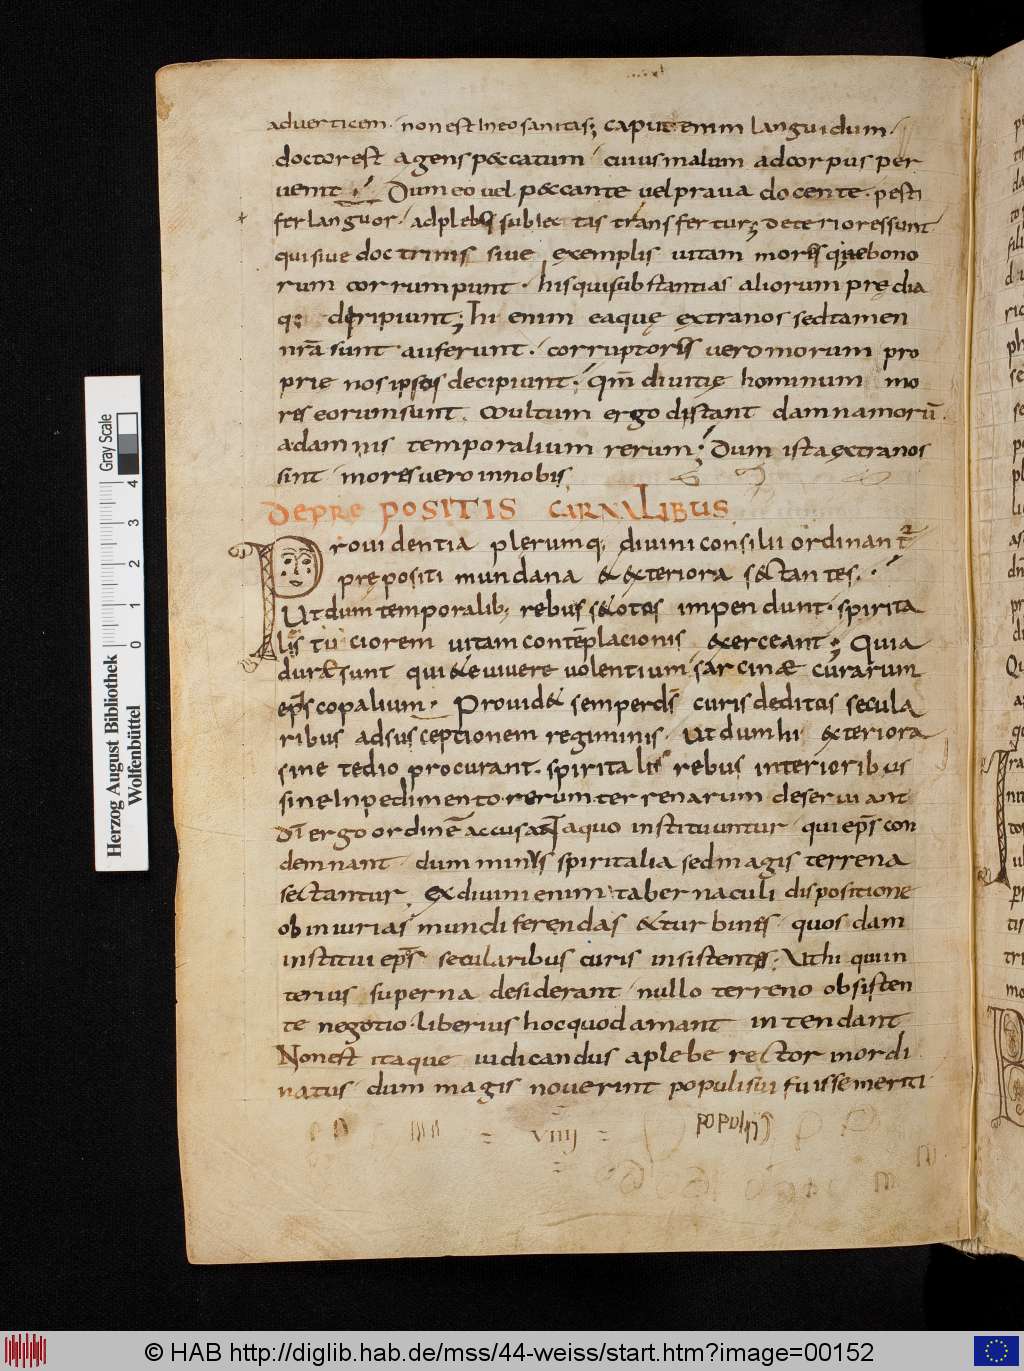 aduerticem · non est In eo sanitas; caput enim languidum ·
doctor est agens peccatum cuius malum ad corpus per
uenit ·; Dum eo uel peccante uel praua docente · pesti
fer languor · ad plebis subiec tas transfertur; deteriores sunt
qui siue doctrinis siue exemplis uitam moresque bono
rum corrumpunt · his qui substantias aliorum prędia
q; deripiunt; hi enim ea quę extra nos sed tamen
nr̄a sunt auferunt · corruptores uero morum pro
prie nos ipsos decipiunt; qm̄ diuitię hominum mo
res eorum sunt. Multum ergo distant damna morū
a damnis temporalium rerum; Dum ista extra nos
sint mores uero in nobis
De prepositis carnalibus
Prouidentia plerumq; diuini consilii ordinant̄
prępositi mundana & exteriora sectantes ·
Ut dum temporalib; rebus se totos impendunt · spirita
lis tuciorem uitam contēplacionis exerceant; Quia
duræ sunt quiete uiuere uolentium sarcinæ curarum
ep̄s copalium · Prouidet semper ds̄ curis deditos secula
ribus ad susceptionem regiminis · Ut dum hi exteriora
sine tedio procurant · spiritalis rebus interioribus
sine Inpedimento rerum terrenarum deseruiant
dī ergo ordinē accusant a quo instituuntur qui ep̄s con
demnant dum minus spiritalia sed magis terrena
sectantur. Ex diuini enim tabernaculi dispositione
ob iniurias mundi ferendas & turbines quosdam
institui ep̄s secularibus curis insistentes · Ut hi qui in
terius superna desiderant nullo terreno obsisten
te negotio · liberius hoc quod amant intendant
Non est itaque iudicandus a plebe rector inordi
natus dum magis nouerint populi sui fuisse meriti
VIIII
populi
Herzog August Bibliothek
Wolfenbüttel
0 1 2 3 4
Gray Scale
© HAB http://diglib.hab.de/mss/44-weiss/start.htm?image=00152